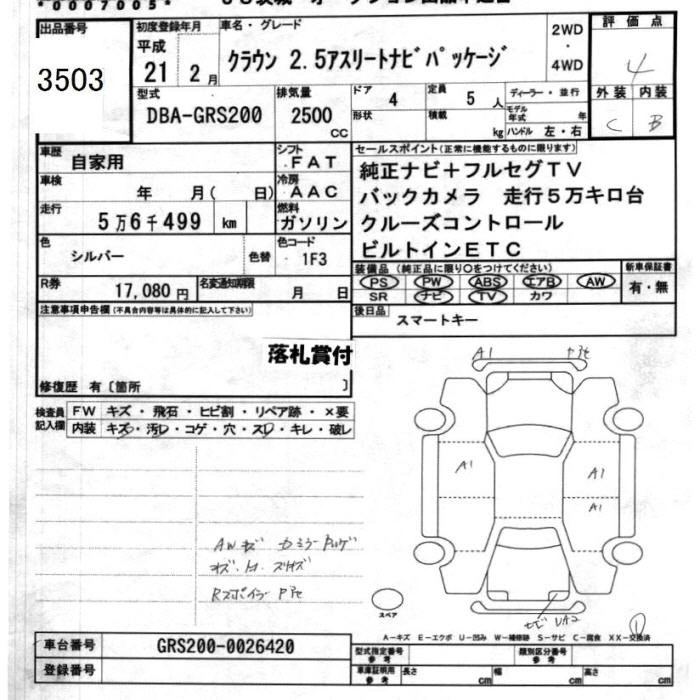 *0007005*
出品番号 初度登録年月 車名・グレード 2WD・4WD 評価点
3503 平成 21 2月 クラウン 2.5アスリートナビパッケージ 4
型式 DBA-GRS200 排気量 2500 CC ドア 4 定員 5人 ディーラー・並行 外装 内装
形状 積載 kg モデル年式 年 ハンドル 左・右 C B
車歴 自家用 シフト FAT
車検 年 月( 日) 冷房 AAC
走行 5万6千499 km 燃料 ガソリン
色 シルバー 色替 色コード 1F3
R券 17,080円 名変通知期限 月 日
セールスポイント(正常に機能するものに限ります)
純正ナビ+フルセグTV
バックカメラ 走行5万キロ台
クルーズコントロール
ビルトインETC
装備品(純正品に限り○をつけてください) 新車保証書
PS PW ABS エアB AW 有・無
SR ナビ TV カワ
後日品 スマートキー
注意事項申告欄(不具合内容等は具体的に記入して下さい)
落札賞付
修復歴 有〔箇所 〕
検査員記入欄 FW キズ・飛石・ヒビ割・リペア跡・×要
内装 キズ・汚レ・コゲ・穴・スレ・キレ・破レ
A1
A1 A1
A1
AWキズ
Rスポイラー
UA2
①
スペア
A-キズ E-エクボ U-凹み W-補修跡 S-サビ C-腐食 XX-交換済
車台番号 GRS200-0026420 型式指定番号 参考 類別区分番号 参考
登録番号 車庫証明用 参考 長さ cm 幅 cm 高さ cm